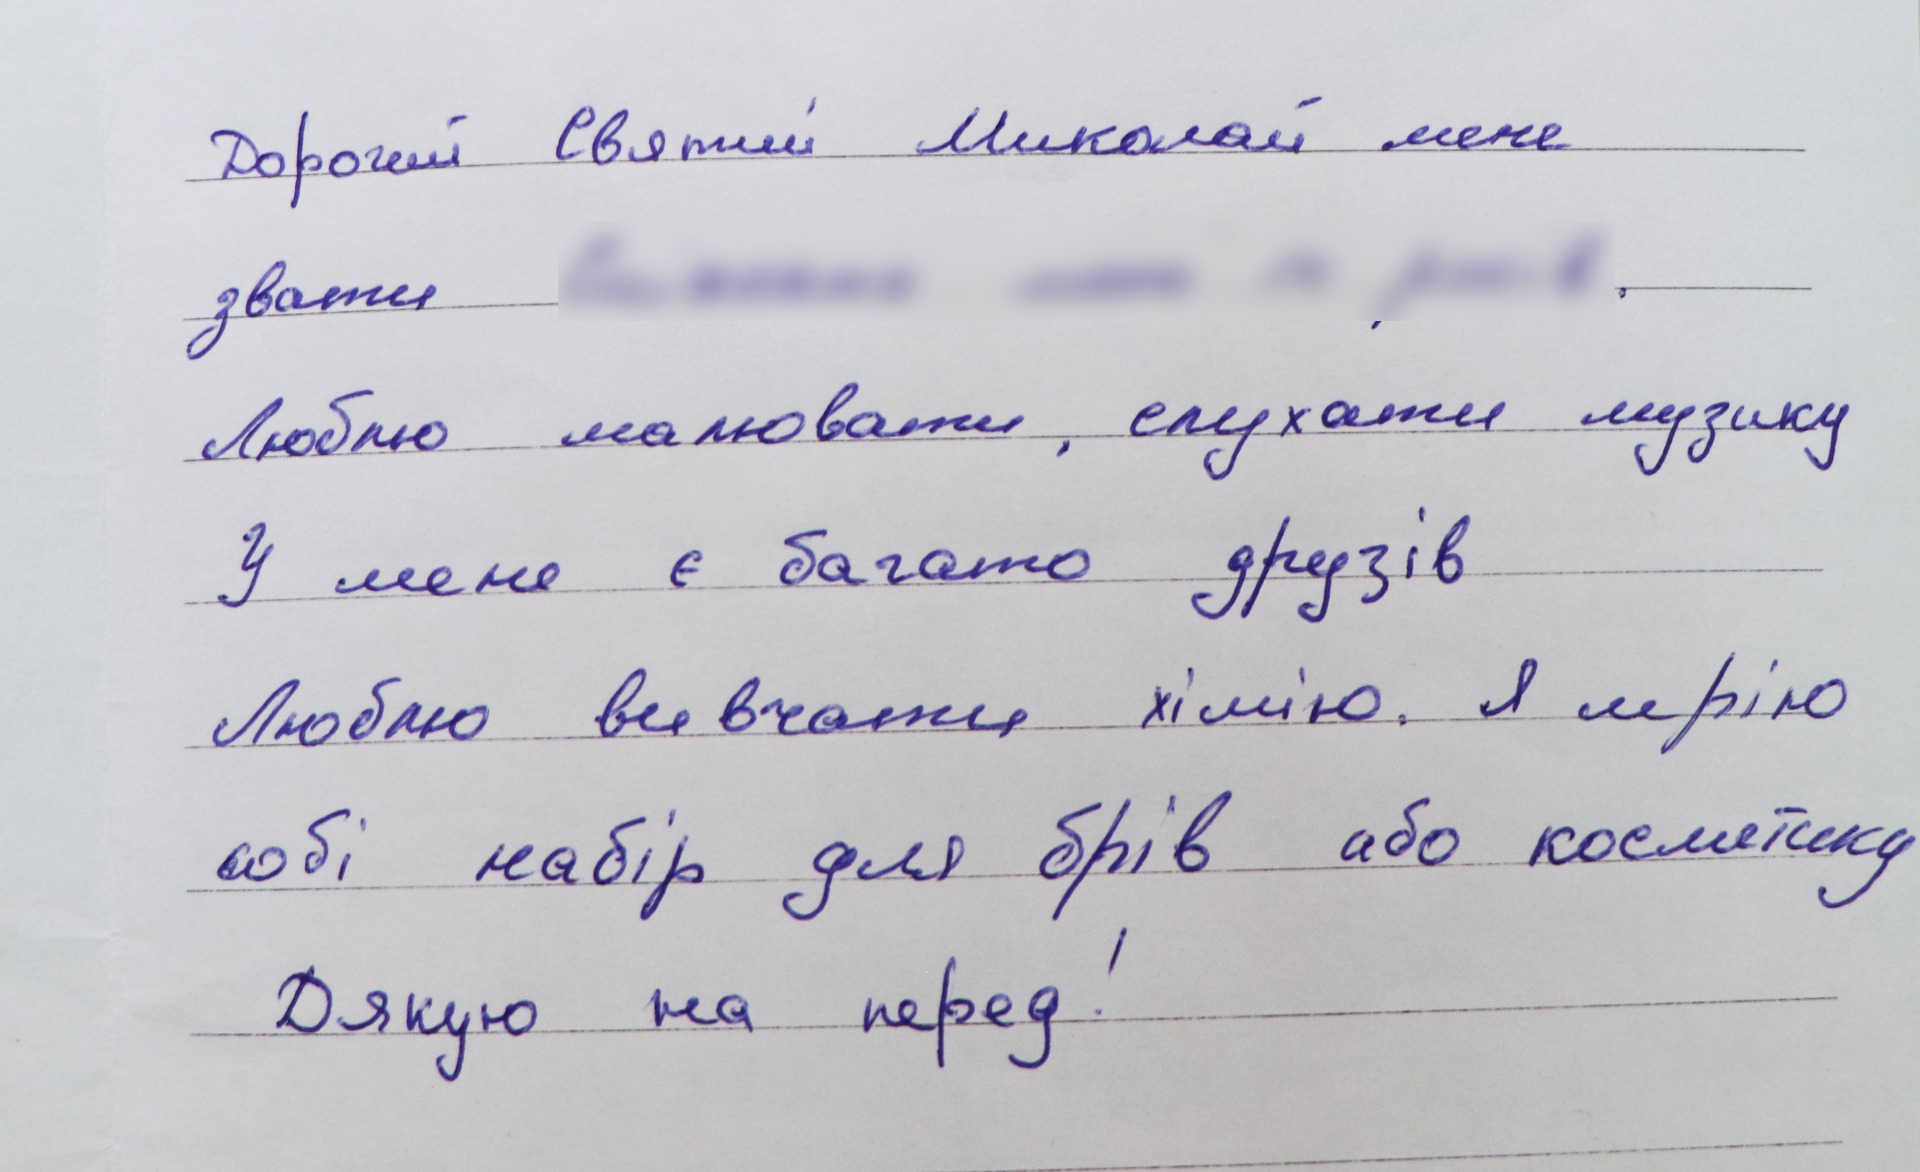 Дорогий Святий Миколай мене
звати .
Люблю малювати, слухати музику
У мене є багато друзів
Люблю вивчати хімію. Я мрію
собі набір для брів або косметику
Дякую на перед!